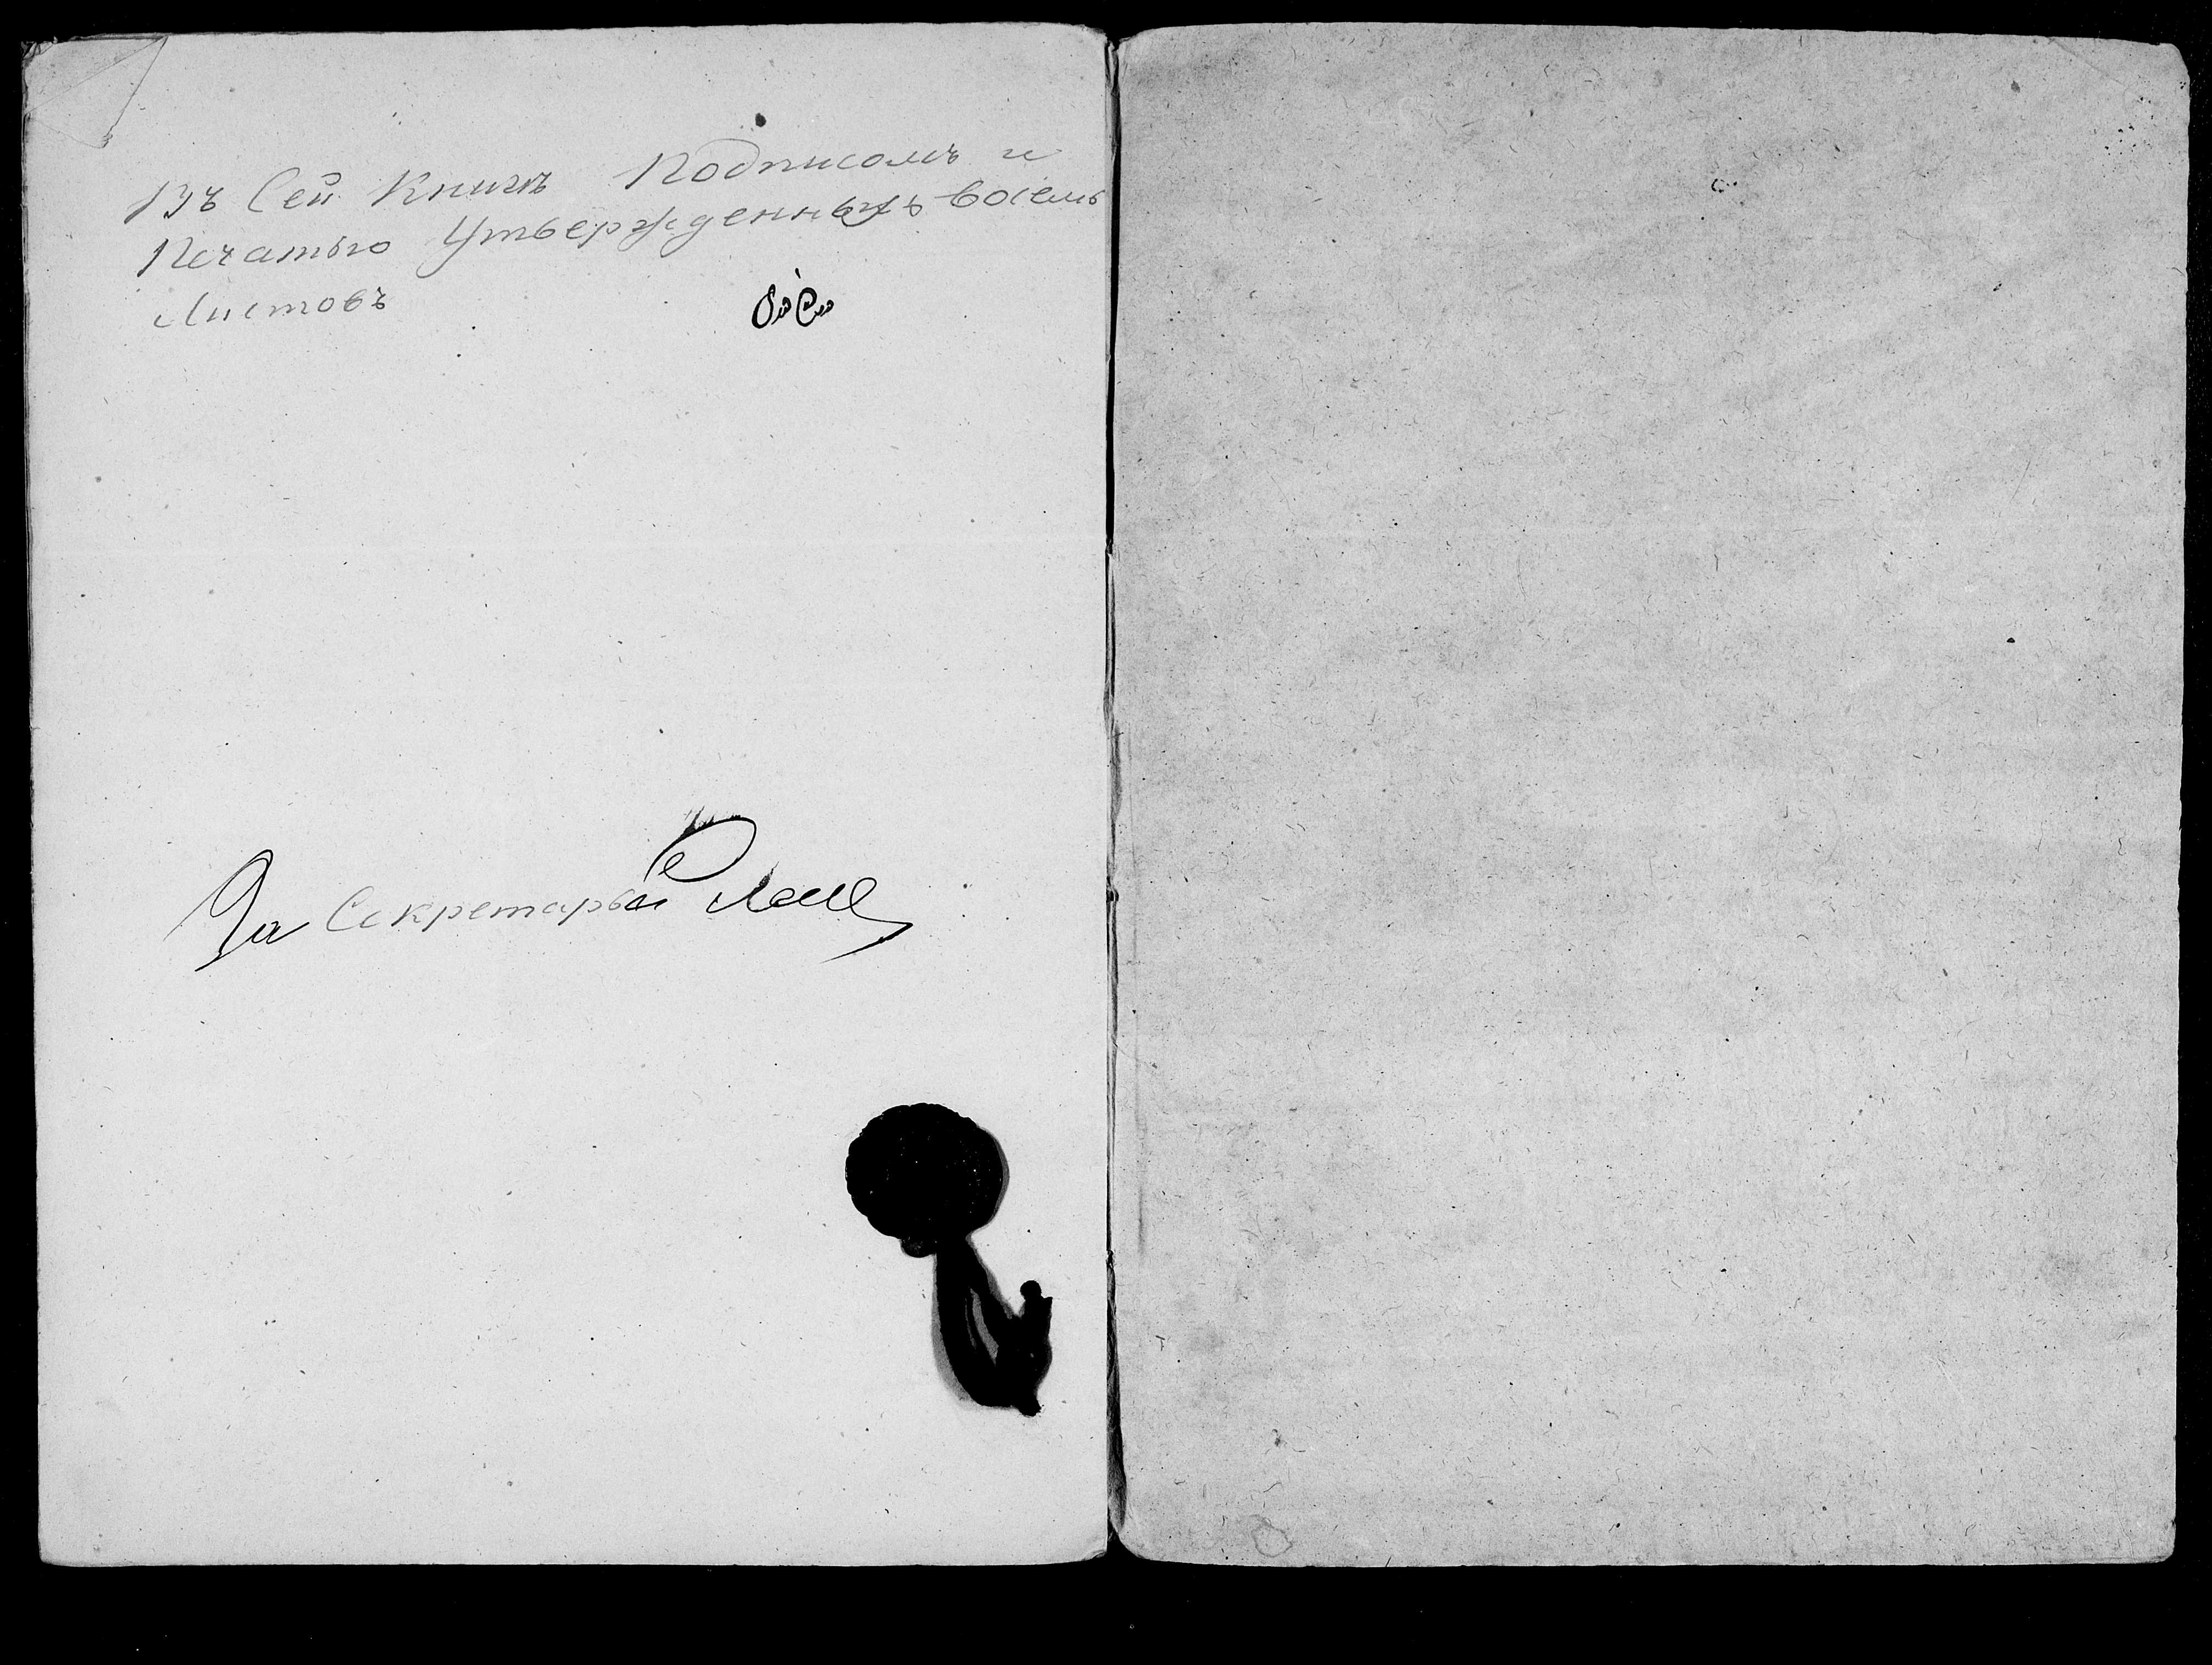 Въ Сей Книгѣ Подписомъ и
Печатью Утвержденныхъ восемь
Листовъ
За Секретаря